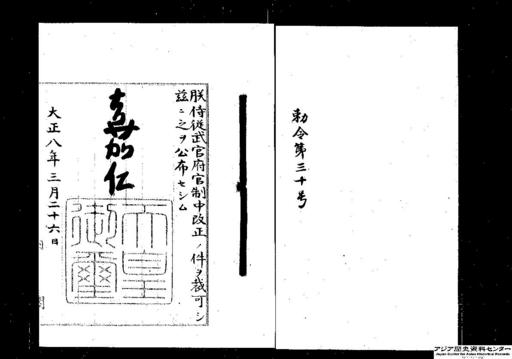 勅令第三十号
朕侍従武官府官制中改正ノ件ヲ裁可シ
茲ニ之ヲ公布セシム
嘉仁
天皇御璽
大正八年三月二十六日
アジア歴史資料センター
Japan Center for Asian Historical Records